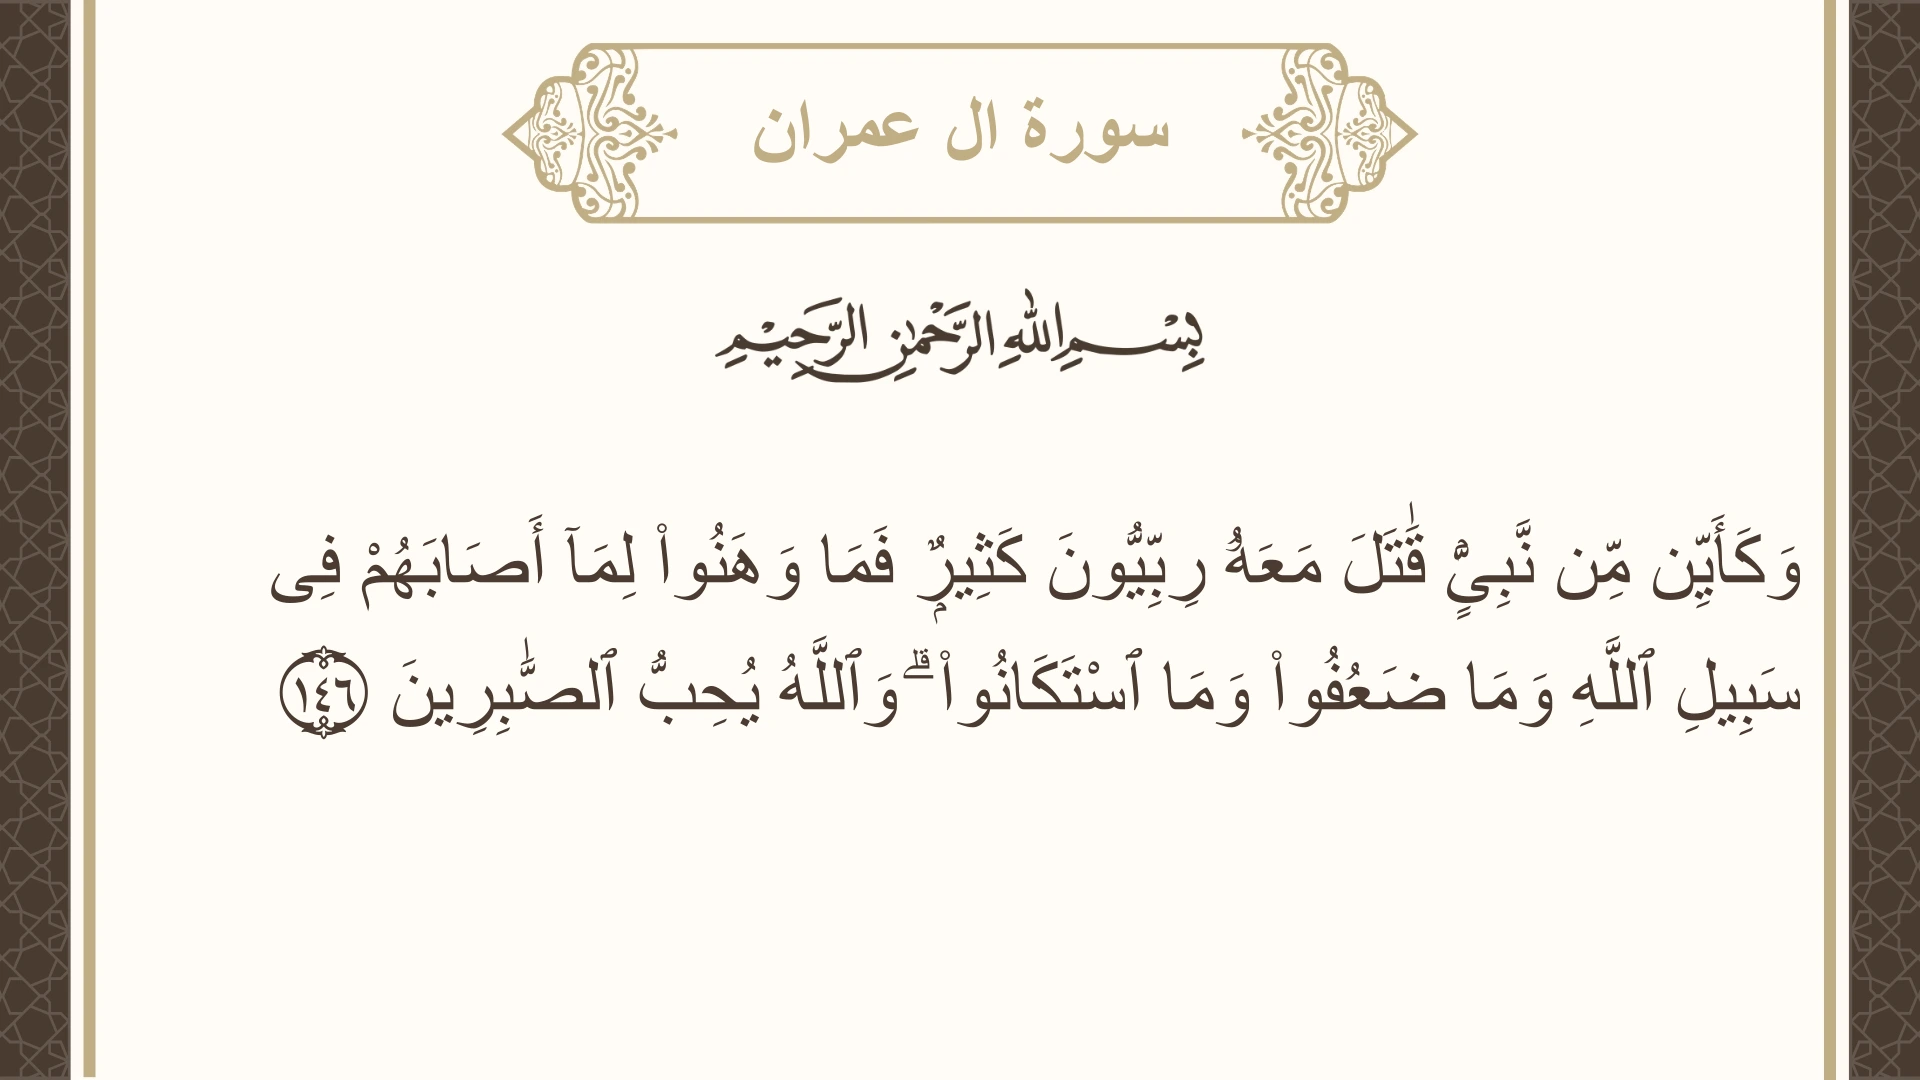 سورة ال عمران
بِسْمِ اللهِ الرَّحْمٰنِ الرَّحِيْمِ
وَكَأَيِّن مِّن نَّبِىٍّۢ قَٰتَلَ مَعَهُۥ رِبِّيُّونَ كَثِيرٌۭ فَمَا وَهَنُوا۟ لِمَآ أَصَابَهُمْ فِى
سَبِيلِ ٱللَّهِ وَمَا ضَعُفُوا۟ وَمَا ٱسْتَكَانُوا۟ ۗ وَٱللَّهُ يُحِبُّ ٱلصَّٰبِرِينَ ١٤٦